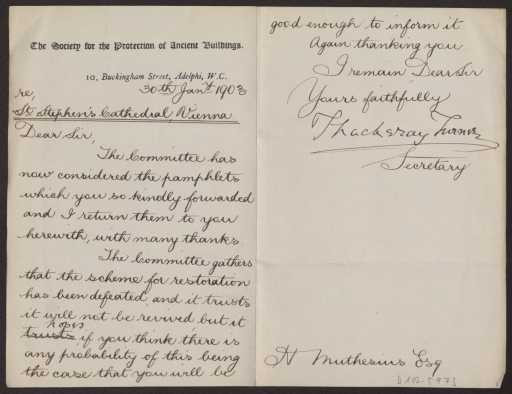 The Society for the Protection of Ancient Buildings.
10, Buckingham Street, Adelphi, W.C.
30th Jany. 1903
re,
St Stephen's Cathedral, Vienna
Dear Sir,
The Committee has
now considered the pamphlets
which you so kindly forwarded
and I return them to you
herewith, with many thanks.
The Committee gathers
that the scheme for restoration
has been defeated, and it trusts
it will not be revived but it
hopes
trusts, if you think there is
any probability of this being
the case that you will be
good enough to inform it
Again thanking you
I remain Dear Sir
Yours faithfully
Thackeray Turner
Secretary
H Muthesius Esq